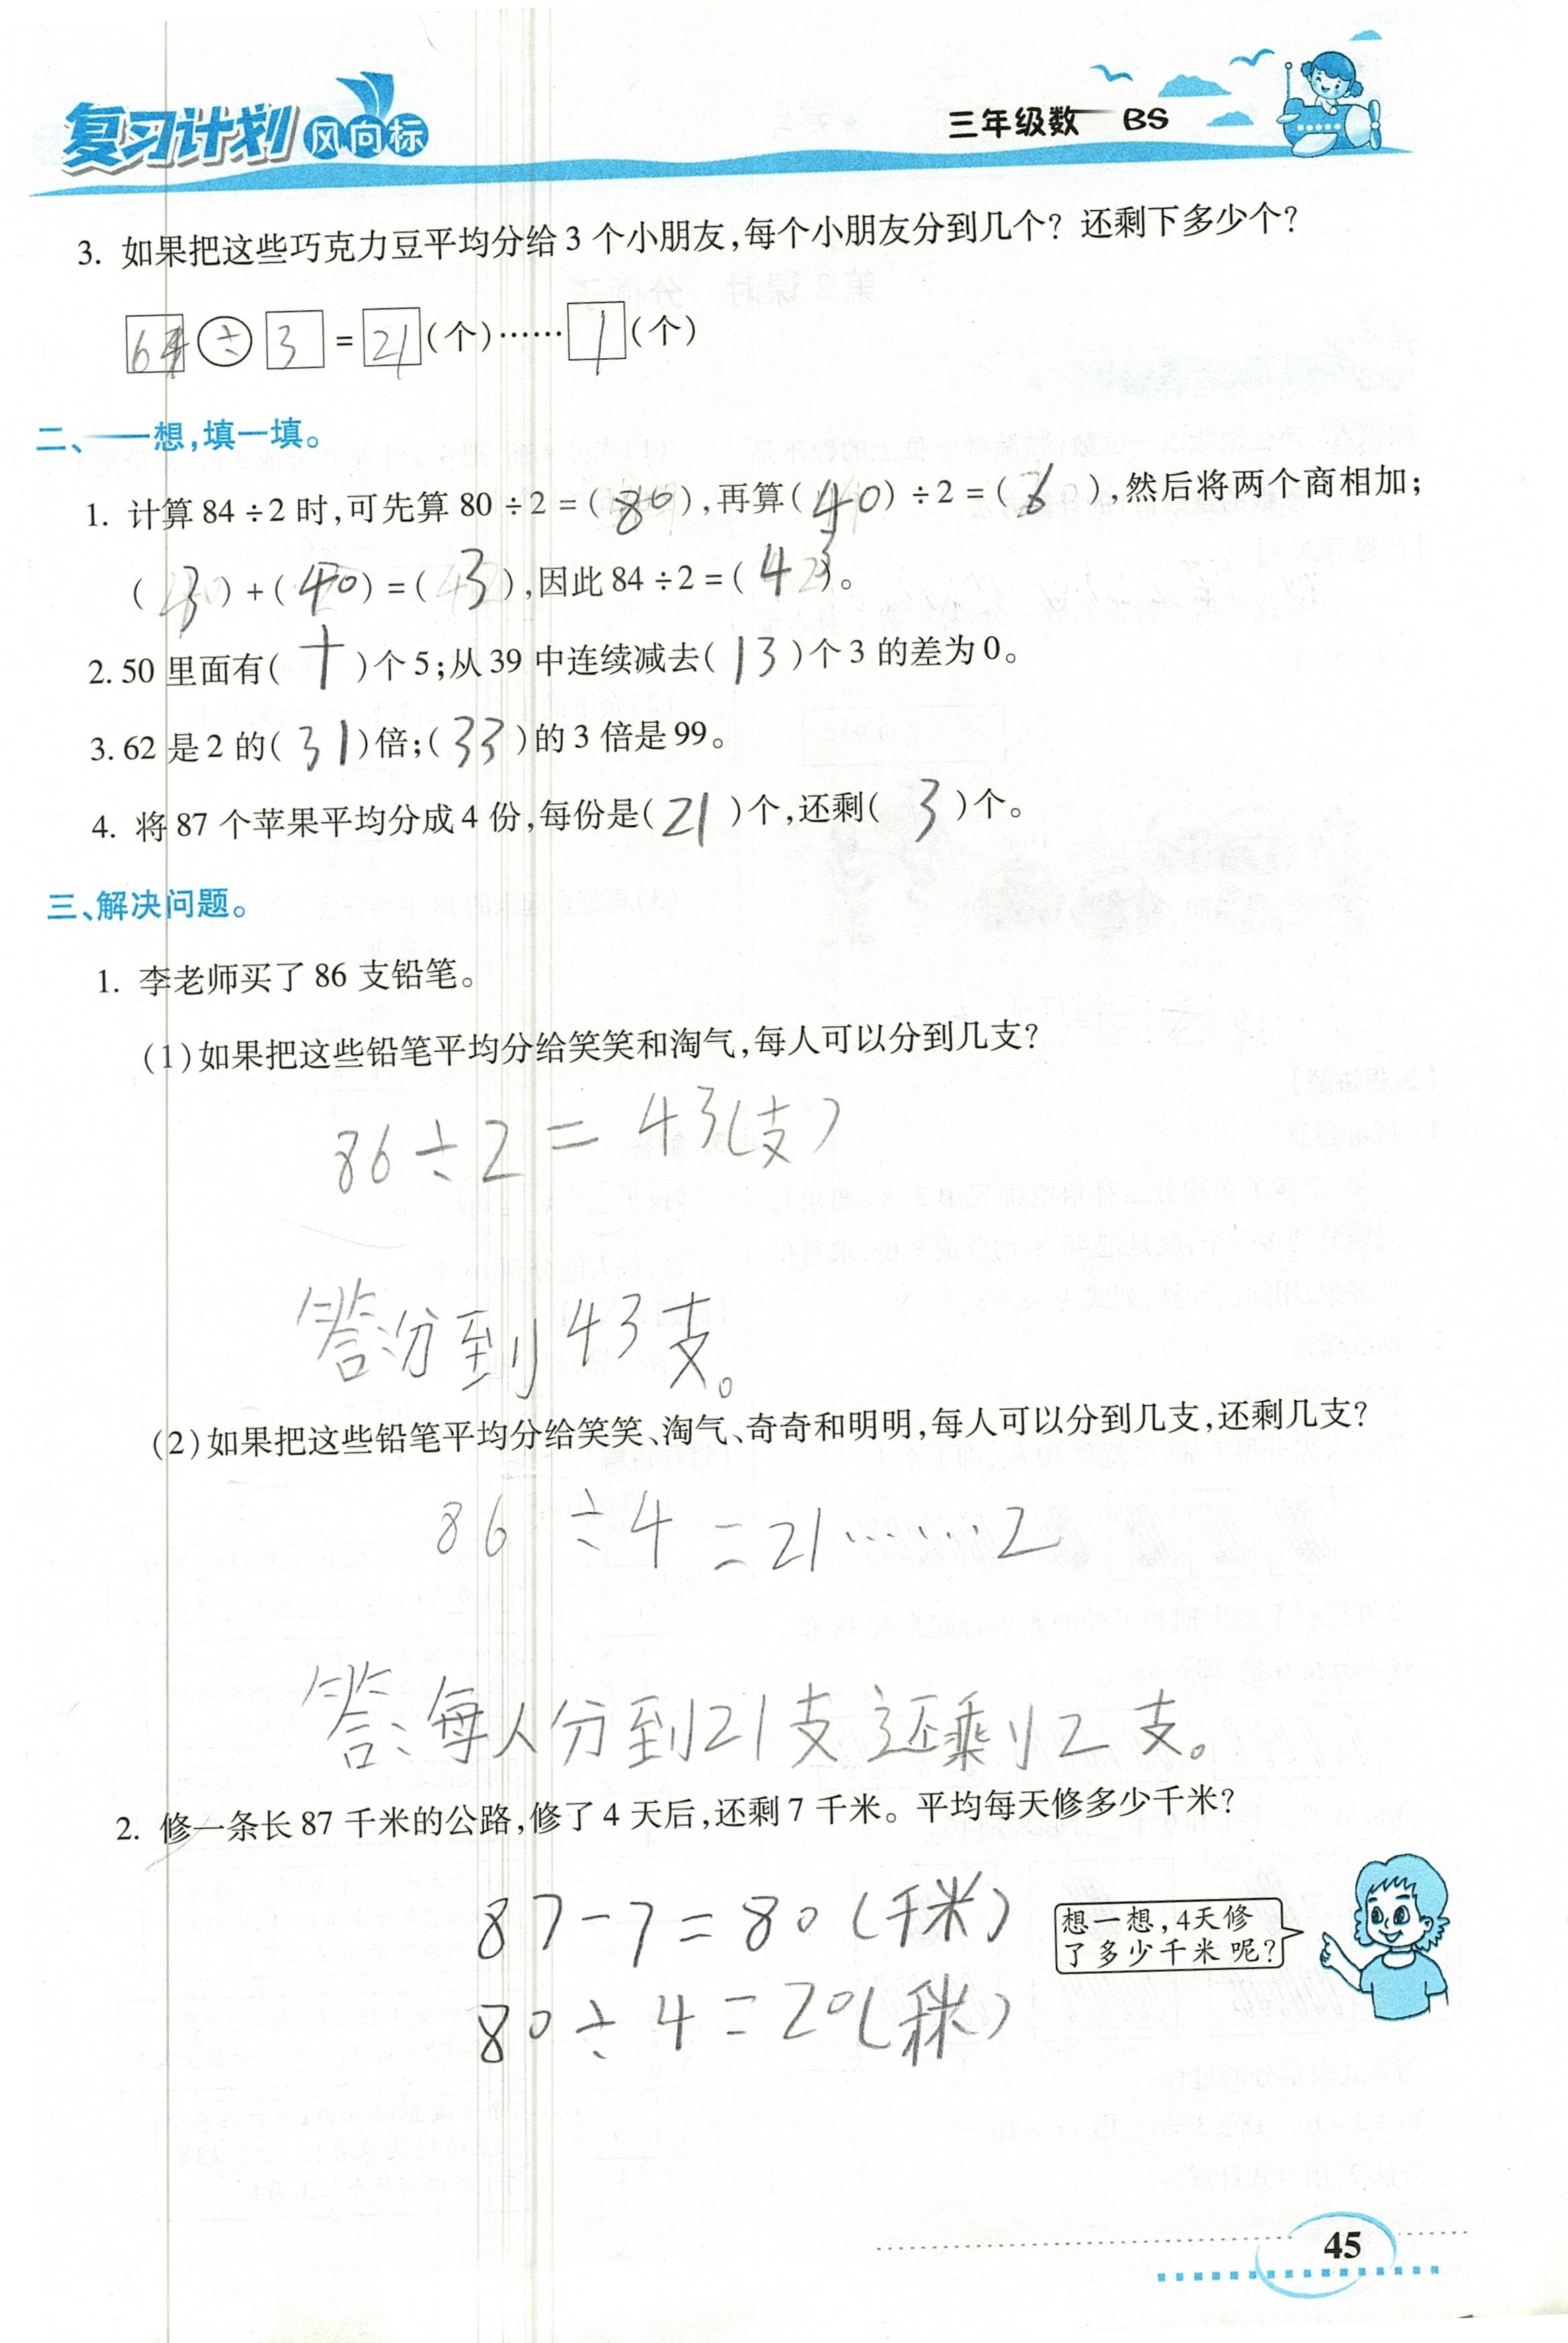 复习计划 风向标
三年级数 BS
3. 如果把这些巧克力豆平均分给3个小朋友,每个小朋友分到几个? 还剩下多少个?
64÷3=21(个)……1(个)
二、一想,填一填。
1. 计算84÷2时,可先算80÷2=(80),再算(40)÷2=( ),然后将两个商相加;
(3)+(40)=(3),因此84÷2=( )。
2. 50里面有(十)个5;从39中连续减去(13)个3的差为0。
3. 62是2的(31)倍;(33)的3倍是99。
4. 将87个苹果平均分成4份,每份是(21)个,还剩(3)个。
三、解决问题。
1. 李老师买了86支铅笔。
(1)如果把这些铅笔平均分给笑笑和淘气,每人可以分到几支?
86÷2=43(支)
答:分到43支。
(2)如果把这些铅笔平均分给笑笑、淘气、奇奇和明明,每人可以分到几支,还剩几支?
86÷4=21……2
答:每人分到21支还剩2支。
2. 修一条长87千米的公路,修了4天后,还剩7千米。平均每天修多少千米?
87-7=80(千米)
想一想,4天修
了多少千米呢?
80÷4=20(千米)
45